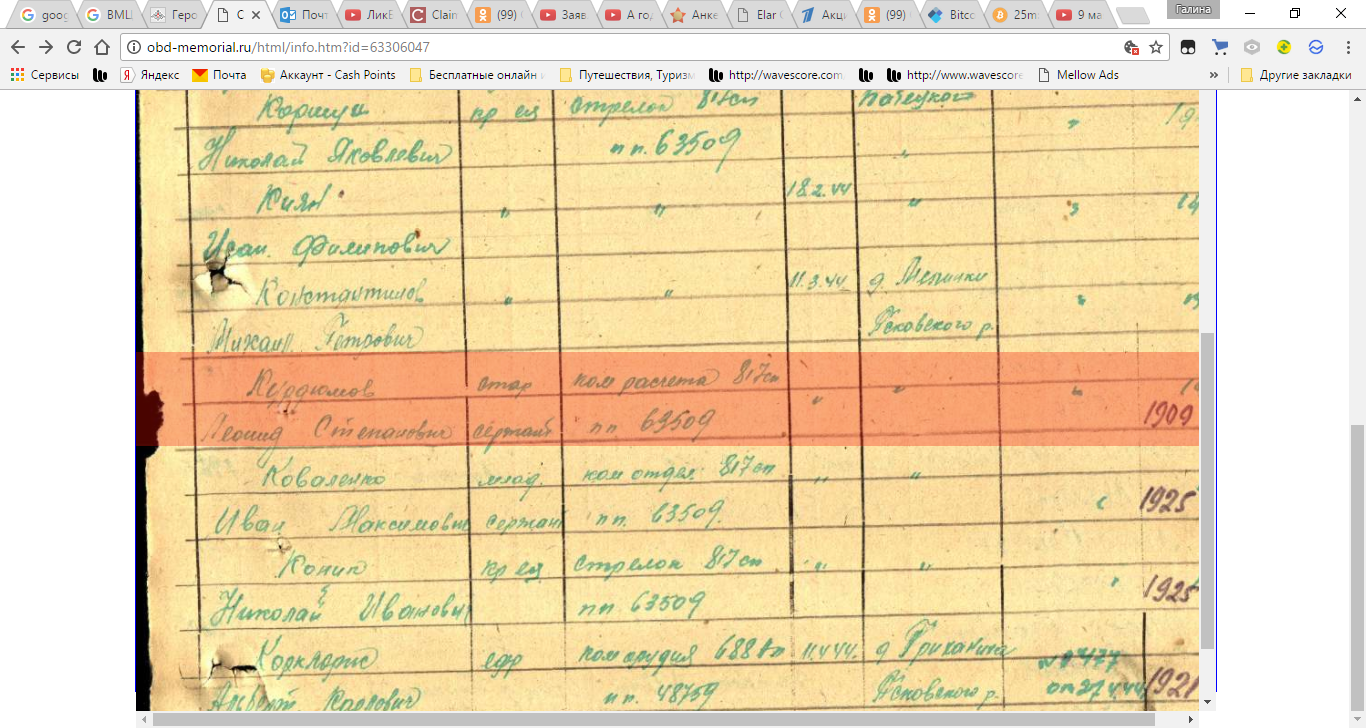 goog
ВМЩ
Геро
С
Почт
ЛикБ
Clain
(99)
Заяв
А год
Анке
Elar
Акци
(99)
Bitcc
25m
9 ма
Галина
obd-memorial.ru/html/info.htm?id=63306047
Сервисы
Яндекс
Почта
Аккаунт - Cash Points
Бесплатные онлайн и
Путешествия, Туризм
http://wavescore.com
http://www.wavescore
Mellow Ads
»
Другие закладки
кр ец стрелок 817сп
Николай Яковлевич пп. 63509 „
Киян „ „ 18.2.44 „ „
Филипович
Константинов „ „ 11.3.44 д.
Михаил Петрович Псковского р.
Курдюмов стар ком расчета 817сп „ „ „
Леонид Степанович сержант пп 63509 1909
Коваленко млад. ком отдел. 817сп „ „
Иван Максимович сержант пп. 63509. 1925
Коник кр ец стрелок 817сп „ „
Николай Иванович пп. 63509 1925
ефр ком орудия 688 11.4.44. д.
Альберт Карлович пп. 48759 Псковского р. от 27.4.44 1921